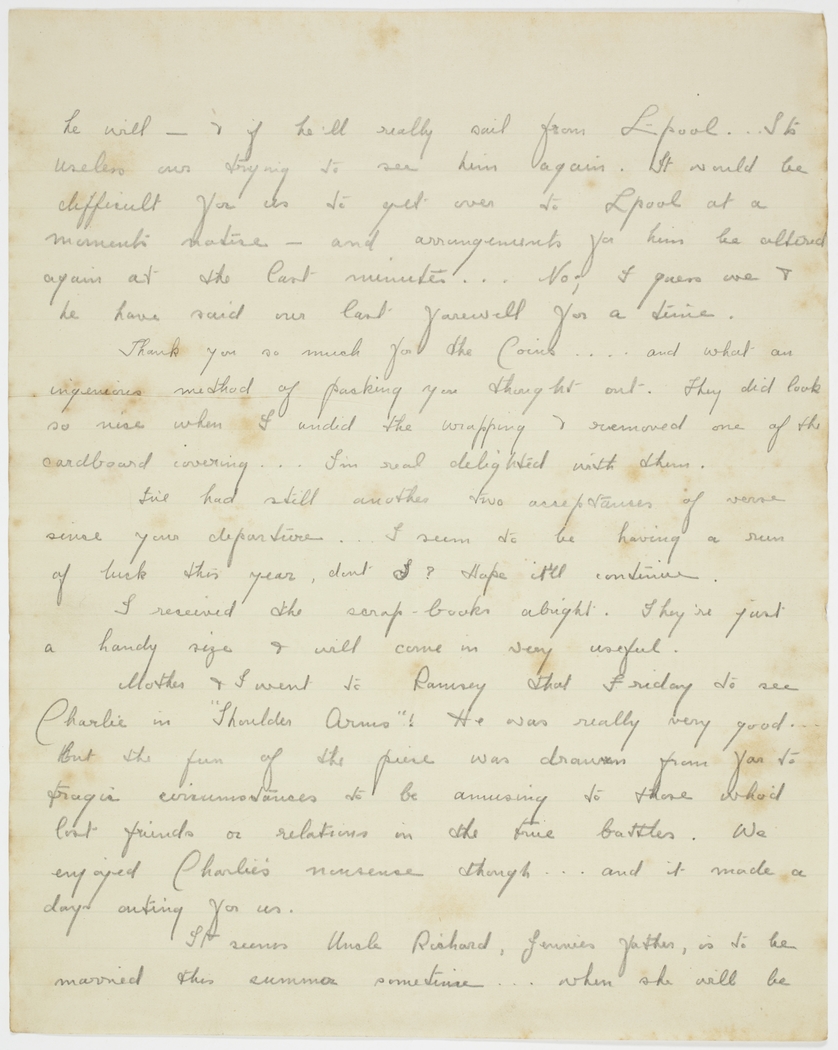 he will — & if he'll really sail from L-pool... Its
useless our trying to see him again. It would be
difficult for us to get over to Lpool at a
moments notice — and arrangements for him be altered
again at the last minute... No, I guess we &
he have said our last farewell for a time.
Thank you so much for the Coins .... and what an
ingenious method of packing you thought out. They did look
so nice when I undid the wrapping & removed one of the
cardboard covering... I'm real delighted with them.
I've had still another two acceptances of verse
since your departure... I seem to be having a run
of luck this year, dont I? Hope it'll continue.
I received the scrap-books alright. They're just
a handy size & will come in very useful.
Mother & I went to Ramsey that Friday to see
Charlie in "Shoulder Arms"! He was really very good...
But the fun of the piece was drawn from far to
tragic circumstances to be amusing to those who'd
lost friends or relations in the true battles. We
enjoyed Charlie's nonsense though... and it made a
days outing for us.
It seems Uncle Richard, Jennies father, is to be
married this summer sometime... when she will be